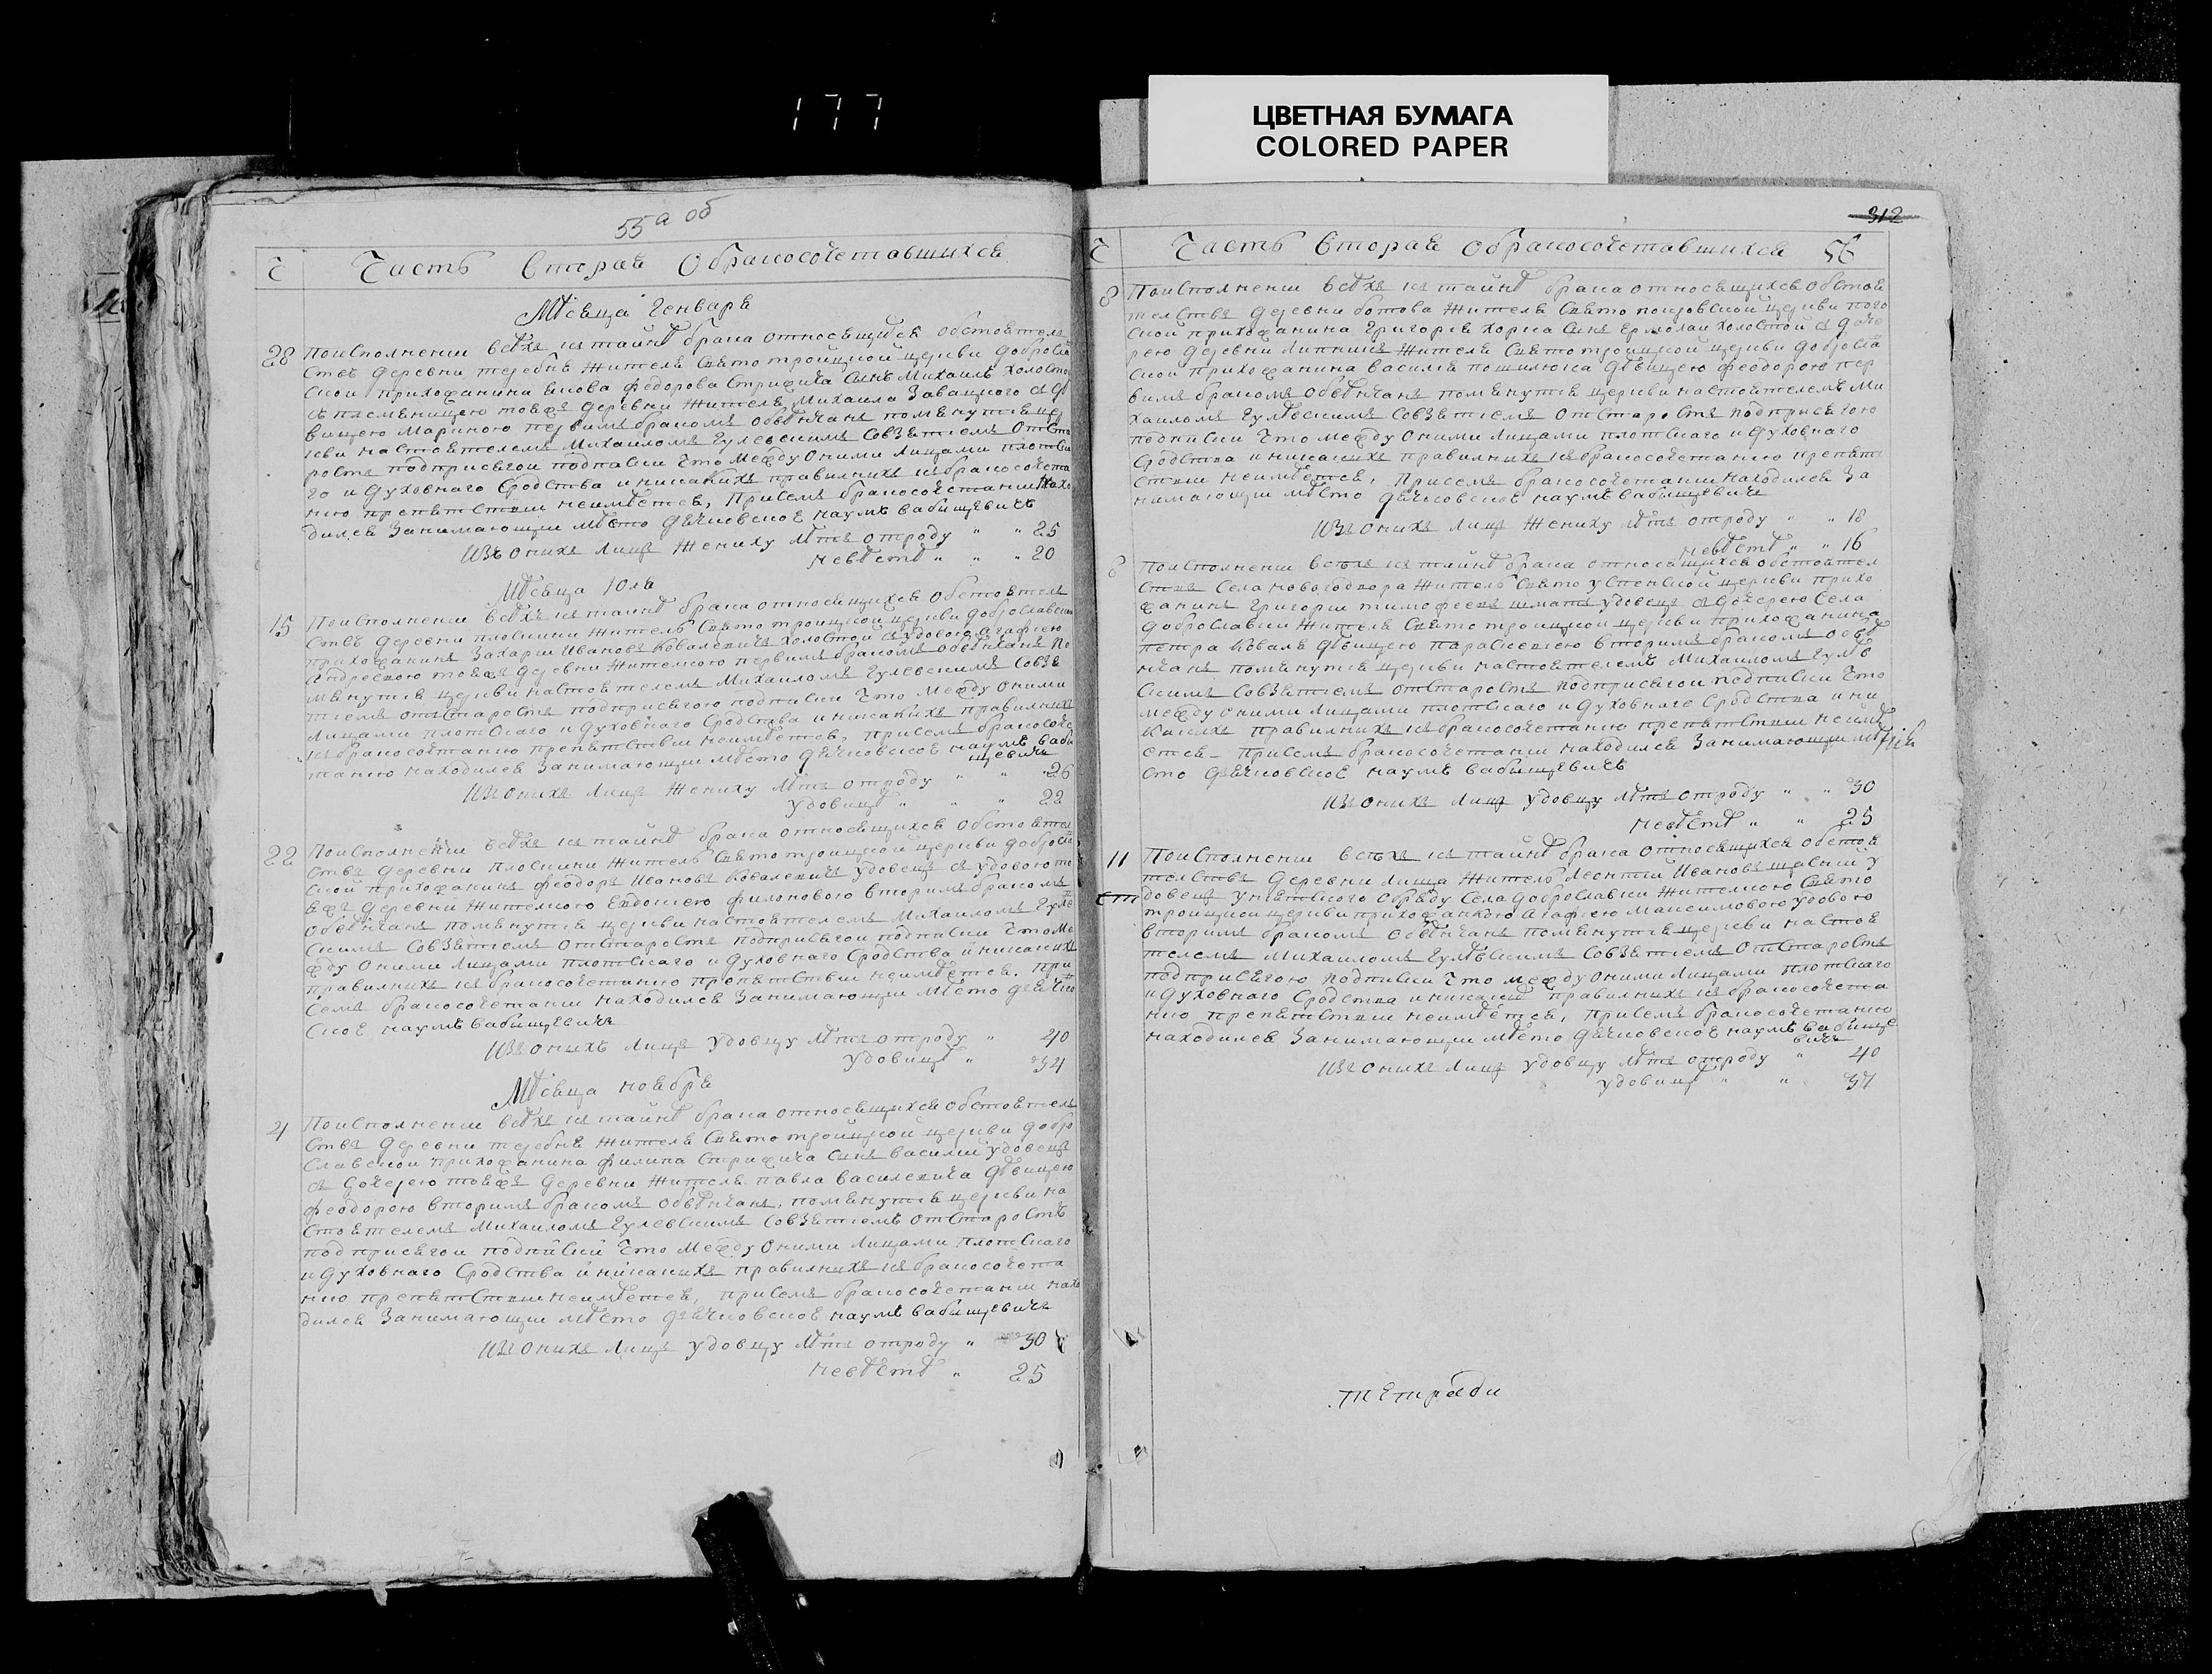 177
ЦВЕТНАЯ БУМАГА
COLORED PAPER
55а об
Ч Часть Вторая Обракосочетавшихся
Мѣсяца Генваря
28 Поисполнении всѣхъ къ тайнѣ брака относящихся обстоятель
ствъ деревни теребнѣ жителя Святотроицкой церкви доброслав
ской прихожанина Якова федорова Стрижича Синъ Михаилъ холостой
съ племѣницею тояжъ деревни жителя Михаила Завацкого дѣ
вицею Мариною первимъ бракомъ обвѣнчанъ помянутія це
ркви настоятелемъ Михаиломъ Гулевскимъ Совзятіемъ отста
ростъ подприсягои подписки Что между Оними лицами плотска
го и духовнаго Сродства иникакихъ правилнихъ къбракосочета
нию препятствии неимѣется, Присемъ бракосочетании нахо
дился Занимающии мѣсто дячковское наумъ бабищевичъ
Изъ онихъ лицъ Жениху лѣтъ отроду " " 25
невѣстѣ " " " 20
Мѣсяца Юля
15 Поисполнении всѣхъ къ тайнѣ брака относящихся обстоятель
ствъ деревни плоскини житель Святотроицкой церкви доброславской
прихожанинъ Захарии Ивановъ Ковалевичъ холостой съ удовою Агафиею
Андреевою тояжъ деревни жителкою первимъ бракомъ обвѣнчанъ по
мянутія церкви настоятелемъ Михаиломъ Гулевскимъ Совзя
тіемъ отстаростъ подприсягою подписки Что между Оними
лицами плотскаго и духовнаго Сродства иникакихъ правилнихъ
къбракосочетанию препятствии неимѣется, присемъ бракосоче
танию находился Занимающии мѣсто дячковское наумъ баби
щевичъ
Изъ онихъ лицъ Жениху лѣтъ отроду " " 26
Удовицѣ " " " 22
22 Поисполнении всѣхъ къ тайнѣ брака относящихся обстоятел
ствъ деревни Плоскини житель Святотроицкой церкви доброслав
ской прихожанинъ феодоръ Ивановъ Ковалевичъ удовецъ съ удовою то
яжъ деревни жителкою Евдокиею филоновою вторимъ бракомъ
обвѣнчанъ помянутія церкви настоятелемъ Михаиломъ Гулев
скимъ Совзятіемъ отстаростъ подприсягои подписки Что ме
жду Оними лицами плотскаго и духовнаго Сродства иникакихъ
правилнихъ къбракосочетанию препятствии неимѣется. При
семъ бракосочетании находился Занимающии мѣсто дячков
ское наумъ бабищевичъ
Изъ онихъ лицъ удовцу лѣтъ отроду " 40
Удовицѣ " 34
Мѣсяца ноября
4 Поисполнении всѣхъ къ тайнѣ брака относящихся обстоятель
ствъ деревни теребнѣ жителя Святотроицкой церкви добро
славской прихожанина филипа Стрижича Синъ василий удовецъ
съ дочерею тояжъ деревни жителя павла василевича дѣвицею
феодорою вторимъ бракомъ обвѣнчанъ, помянутія церкви на
стоятелемъ Михаиломъ Гулевскимъ Совзятіемъ отстаростъ
подприсягои подписки Что между Оними лицами плотскаго
и духовнаго Сродства и никакихъ правилнихъ къбракосочета
нию препятствии неимѣется, присемъ бракосочетании нахо
дился Занимающии мѣсто дячковское наумъ бабищевичъ
Изъ онихъ лицъ удовцу лѣтъ отроду " 30
невѣстѣ " 25
312
Ч Часть Вторая Обракосочетавшихся 56
8 Поисполнении всѣхъ къ тайнѣ брака относящихся обстоя
телствъ деревни ботова жителя Святопокровской церкви
ской прихожанина Григория хорса Синъ Ермолаи холостой съ доче
рею деревни липники жителя Святотроицкой церкви доброслав
ской прихожанина василия дѣвицею феодорою пер
вимъ бракомъ обвѣнчанъ помянутія церкви настоятелемъ Ми
хаиломъ Гулевскимъ Совзятіемъ отстаростъ подприсягою
подписки Что между Оними лицами плотскаго и духовнаго
Сродства иникакихъ правилнихъ къбракосочетанию препят
ствии неимѣется, Присемъ бракосочетании находился За
нимающии мѣсто дячковское наумъ бабищевичъ
Изъ онихъ лицъ Жениху лѣтъ отроду " " 18
невѣстѣ " " 16
8 Поисполнении всѣхъ къ тайнѣ брака относящихся обстоятел
ствъ Села новогодвора житель Святоуспенской церкви прихо
жанинъ Григории тимофеевъ удовецъ съ дочерею Села
Доброславки жителя Святотроицкой церкви прихожанина
петра Коваля дѣвицею параскевиею вторимъ бракомъ обвѣ
нчанъ помянутія церкви настоятелемъ Михаиломъ Гулев
скимъ Совзятіемъ отстаростъ подприсягои подписки Что
между Оними лицами плотскаго и духовнаго Сродства и ни
какихъ правилнихъ къбракосочетанию препятствии неимѣ
ется присемъ бракосочетании находился Занимающии мѣ
сто дячковское наумъ бабищевичъ
Изъ онихъ лицъ удовцу лѣтъ отроду " " 30
невѣстѣ " " 25
11 Поисполнении всѣхъ къ тайнѣ брака относящихся обстоя
телствъ деревни лища житель леонтий Ивановъ у
довецъ униятского обряду Села доброславки жителкою Свято
троицкой церкви прихожанкою Агафиею Максимовою удовою
вторимъ бракомъ обвѣнчанъ помянутія церкви настоя
телемъ Михаиломъ Гулевскимъ Совзятіемъ отстаростъ
подприсягою подписки Что между Оними лицами плотскаго
и духовнаго Сродства иникакихъ правилнихъ къбракосочета
нию препятствии неимѣется, присемъ бракосочетанию
находился Занимающии мѣсто дячковское наумъ бабище
вичъ
Изъ онихъ лицъ удовцу лѣтъ отроду " 40
удовицѣ " " 37
тетради